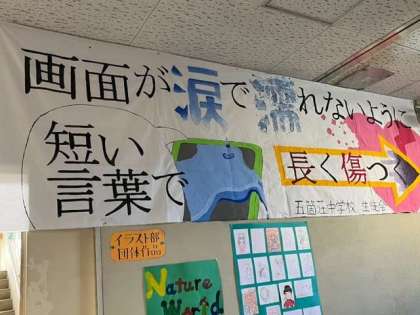 画面が涙で濡れないように
短い
言葉で
長く傷つく
五箇荘中学校 生徒会
イラスト部
団体作品
Nature
World